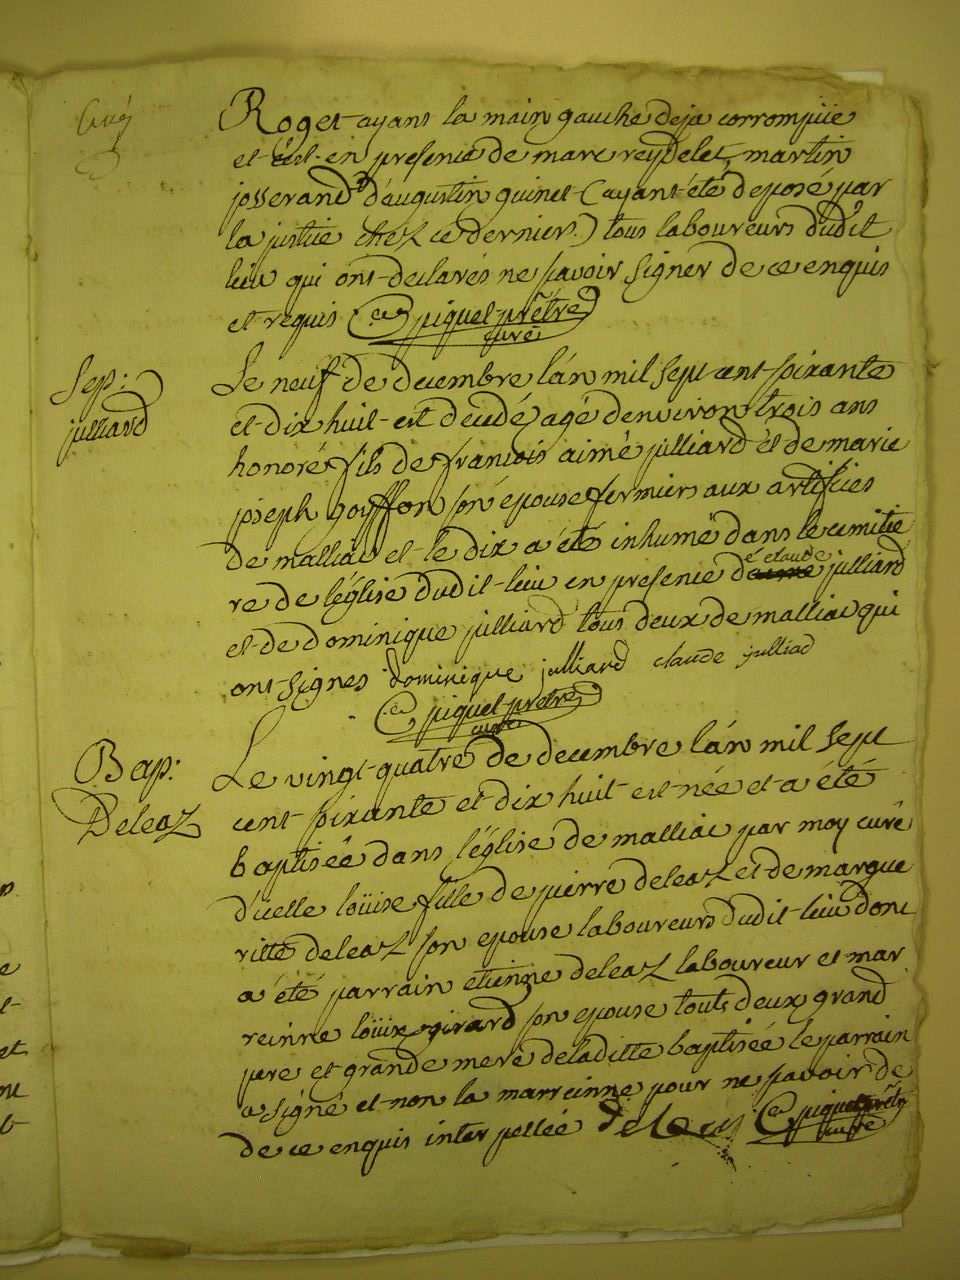 Roget ayant la main gauche deja corrompüe
et c'est en presence de marc reydelet, martin
josserand & d'augustin guinet (ayant été deposé par
la justice chez ce dernier) tous laboureurs dudit
lieu qui ont declarés ne sçavoir signer de ce enquis
et requis piquet prêtre
curé
Sep:
julliard
Le neuf de decembre l'an mil sept cent soixante
et dix huit est decedé agé denviron trois ans
honoré fils de francois aimé julliard et de marie
joseph gouffon son épouse fermiers aux artifices
de malliac et le dix a été inhumé dans le cimitie
re de l'église dudit lieu en presence de claude julliard
et de dominique julliard tous deux de malliac qui
ont signes dominique julliard claude julliad
piquet prêtre
curé
Bap:
Deleaz
Le vingt quatre de decembre l'an mil sept
cent soixante et dix huit est née et a été
baptisée dans l'église de malliac par moy curé
d'icelle loüise fille de pierre deleaz et de margue
ritte deleaz son epouse laboureurs dudit lieu dont
a été parrain etienne deleaz laboureur et mar
reinne loüise girard son epouse touts deux grand
pere et grande mere de laditte baptisée le parrain
a signé et non la marreinne pour ne sçavoir de
de ce enquis inter pellée deleas piquet prêtre
curé